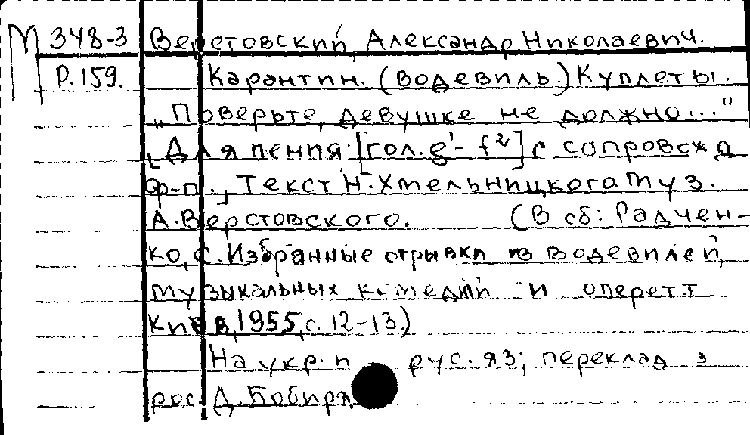 М 348-3 Верстовский, Александр Николаевич.
Р.159. Карантин. (Водевиль.) Куплеты.
„Поверьте, девушке не должно..."
[Для пения [гол. g¹- f²] с сопровожд
ф-п.] Текст Н. Хмельницкого Муз.
А. Верстовского. (В сб: Радчен-
ко, С. Избранные отрывки из водевилей,
музыкальных комедий и оперетт
Киев, 1955, с. 12-13.)
На укр. и рус. яз; переклад з
рос. Д. Бобиря